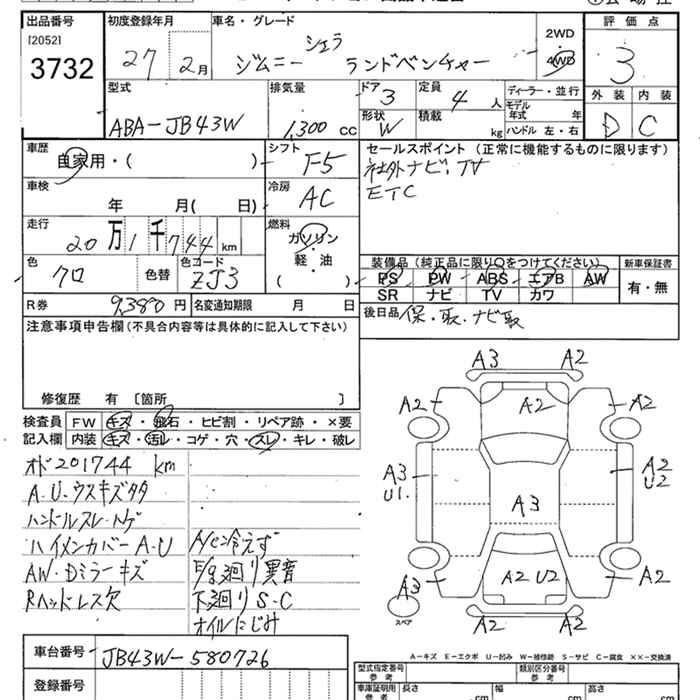 出品番号 初度登録年月 車名・グレード 2WD 評価点
[2052] 27 2月 ジムニー シエラ ランドベンチャー 4WD 3
3732
型式 排気量 ドア 3 定員 4 人 ディーラー・並行 外装 内装
モデル年式 年
ABA-JB43W 1,300 cc 形状 W 積載 kg ハンドル 左・右 D C
車歴 自家用・( ) シフト F5 セールスポイント (正常に機能するものに限ります)
社外ナビ、TV
車検 年 月( 日) 冷房 AC ETC
走行 20万1千744 km 燃料 ガソリン
軽・油
( )
色 クロ 色替 色コード ZJ3 装備品 (純正品に限り○をつけてください) 新車保証書
PS PW ABS エアB AW 有・無
SR ナビ TV カワ
R券 9,380 円 名変通知期限 月 日
後日品 保・取・ナビ取
注意事項申告欄 (不具合内容等は具体的に記入して下さい)
修復歴 有 〔箇所 〕
検査員 FW キズ・飛石・ヒビ割・リペア跡・×要
記入欄 内装 キズ・汚レ・コゲ・穴・スレ・キレ・破レ
オド201744 km
A.U.ウスキズタタ
ハンドルスレ・ハゲ
ハイメンカバーA・U A/C冷えず
AW・Dミラーキズ E/g廻り異音
Rヘッドレス欠 下廻りS・C
オイルにじみ
A3 A2
A2 A2 A2
A3 U1 A3 A2 U2
A3 A2 U2 A2
スペア A2 A2
A-キズ E-エクボ U-凹み W-補修跡 S-サビ C-腐食 ××-交換済
車台番号 JB43W-580726
登録番号
型式指定番号 参考 類別区分番号 参考
車庫証明用 参考 長さ cm 幅 cm 高さ cm